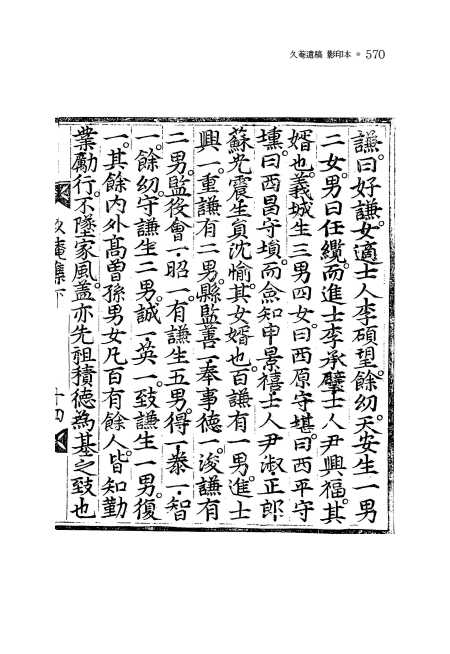 久菴遺稿 影印本 • 570
謙曰好謙女適士人李碩望餘幼天安生一男
二女男曰任纜而進士李承壁士人尹興福其
婿也義城生三男四女曰西原守堪曰西平守
壎曰西昌守塤而僉知申景禧士人尹淑正郎
蘇光震生員沈愉其女婿也百謙有一男進士
興一重謙有二男縣監善一奉事德一浚謙有
二男監役會一昭一有謙生五男得一泰一智
一餘幼守謙生二男誠一英一致謙生一男復
一其餘內外高曾孫男女凡百有餘人皆知勤
業勵行不墜家風蓋亦先祖積德爲基之致也
久菴集下
十四